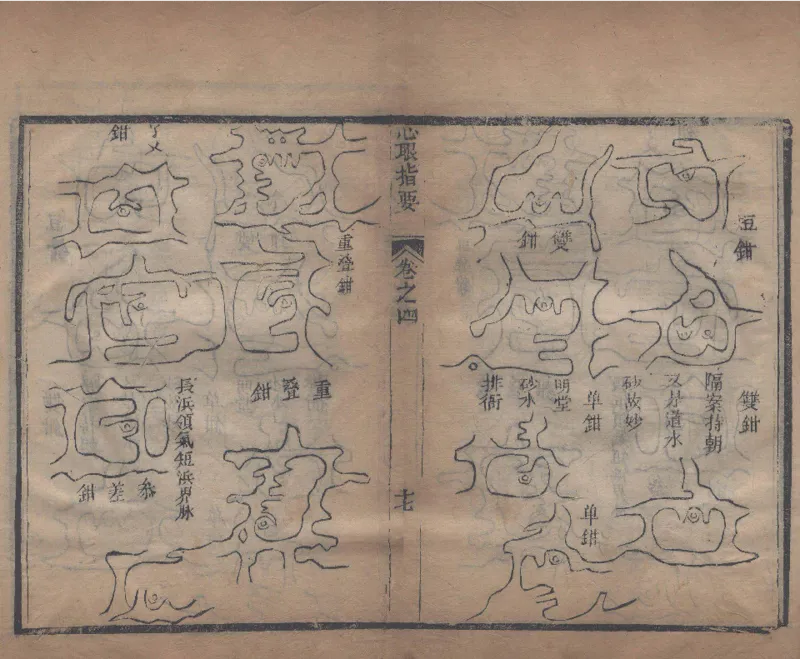 豆鉗
雙鉗
隔案持朝
砂故妙
雙鉗
单鉗
单鉗
明堂
砂水
排衙
心眼指要
卷之四
十七
重疊鉗
重疊鉗
長浜領氣短浜界脉
鉗
參差鉗